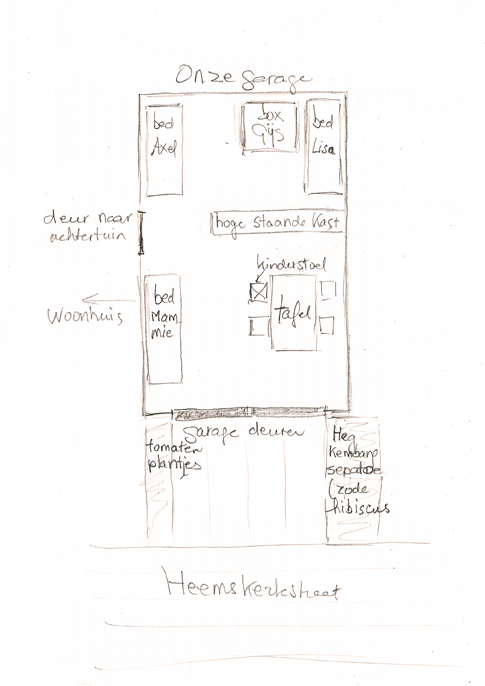 Onze garage
bed
Axel
box
Gijs
bed
Lisa
deur naar
achtertuin
hoge staande kast
kinderstoel
Woonhuis
bed
Mam
mie
tafel
garage deuren
tomaten
plantjes
Heg
kembang
sepatoe
(rode
hibiscus
Heemskerkstraat